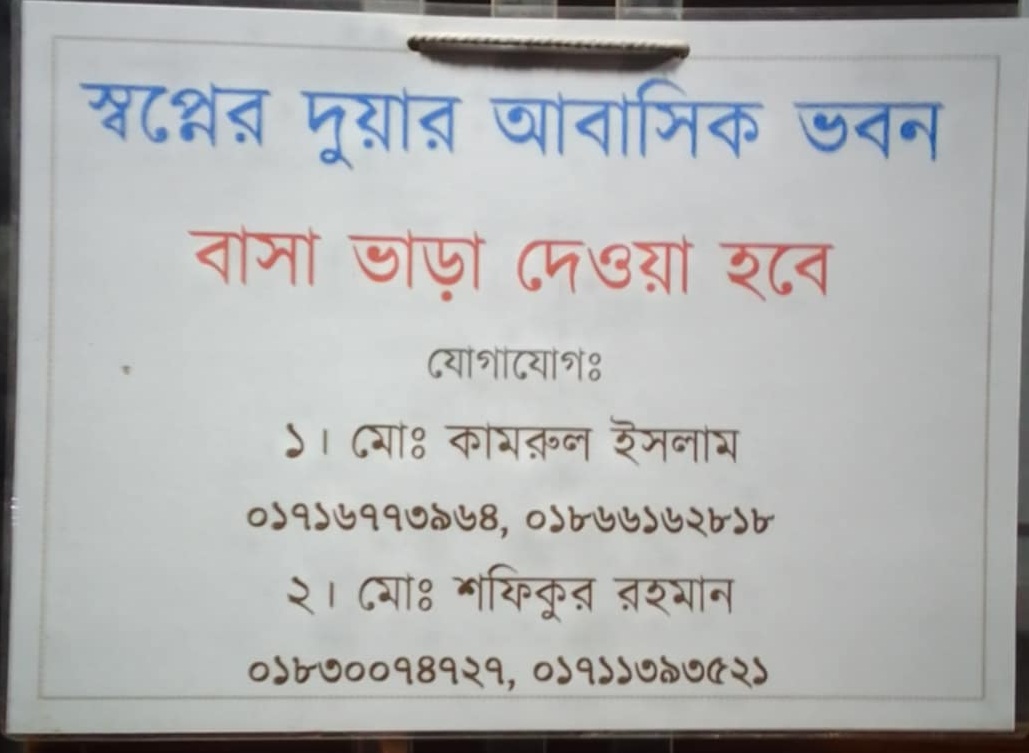 স্বপ্নের দুয়ার আবাসিক ভবন
বাসা ভাড়া দেওয়া হবে
যোগাযোগঃ
১। মোঃ কামরুল ইসলাম
০১৭১৬৭৭৩৯৬৪, ০১৮৬৬১৬২৮১৮
২। মোঃ শফিকুর রহমান
০১৮৩০০৭৪৭২৭, ০১৭১১৩৯৩৫২১